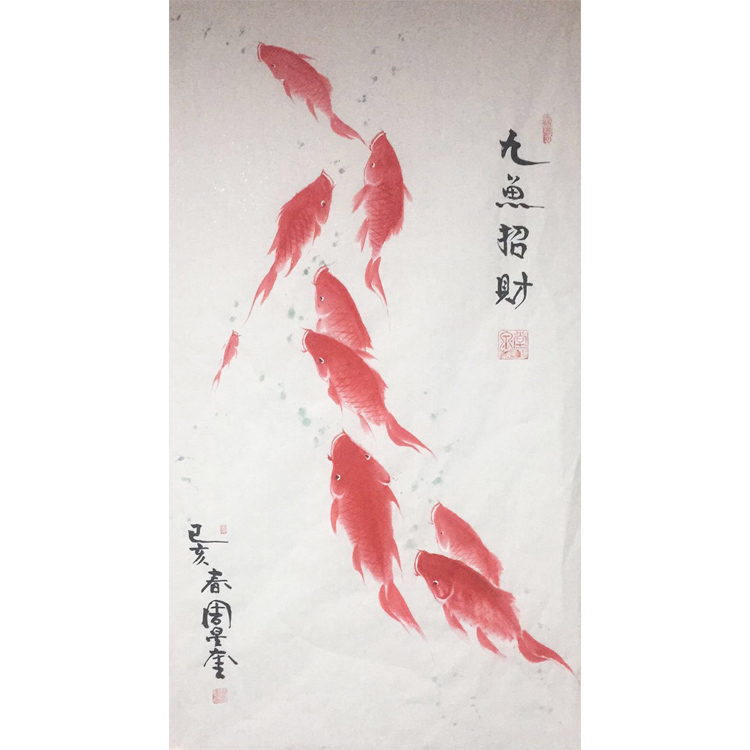 九魚招財
己亥春周星奎